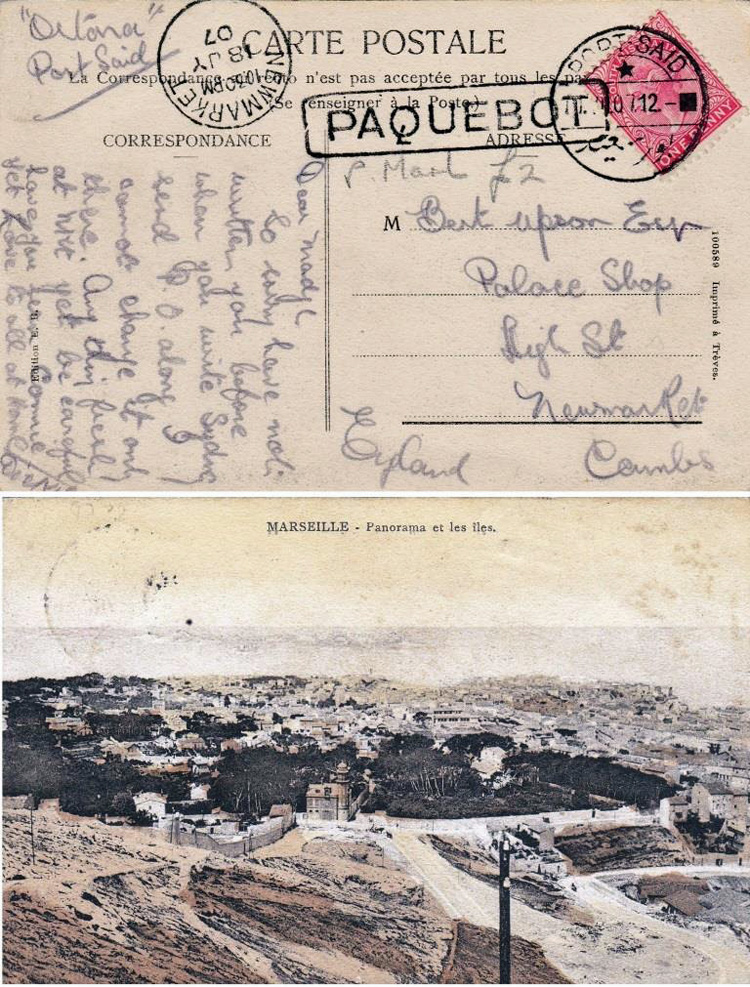 "Ortona"
Port Said
NEWMARKET
10.30PM
18 JY
07
CARTE POSTALE
La Correspondance au recto n'est pas acceptée par tous les pays
(Se renseigner à la Poste.)
PORT-SAID
12
PAQUEBOT
ONE PENNY
CORRESPONDANCE
ADRESSE
P. Mark £2
Dear Madge
So why have not
written you before
when you write Sydney
send P.O. along I
cannot change it only
there. Any thing fresh
at Nkt yet be careful
have you seen Connie
yet Love to all at
M Bert upson Esq
Palace Shop
High St
Newmarket
Cambs
England
Edition E. R.
100589 Imprimé à Trèves.
MARSEILLE - Panorama et les îles.